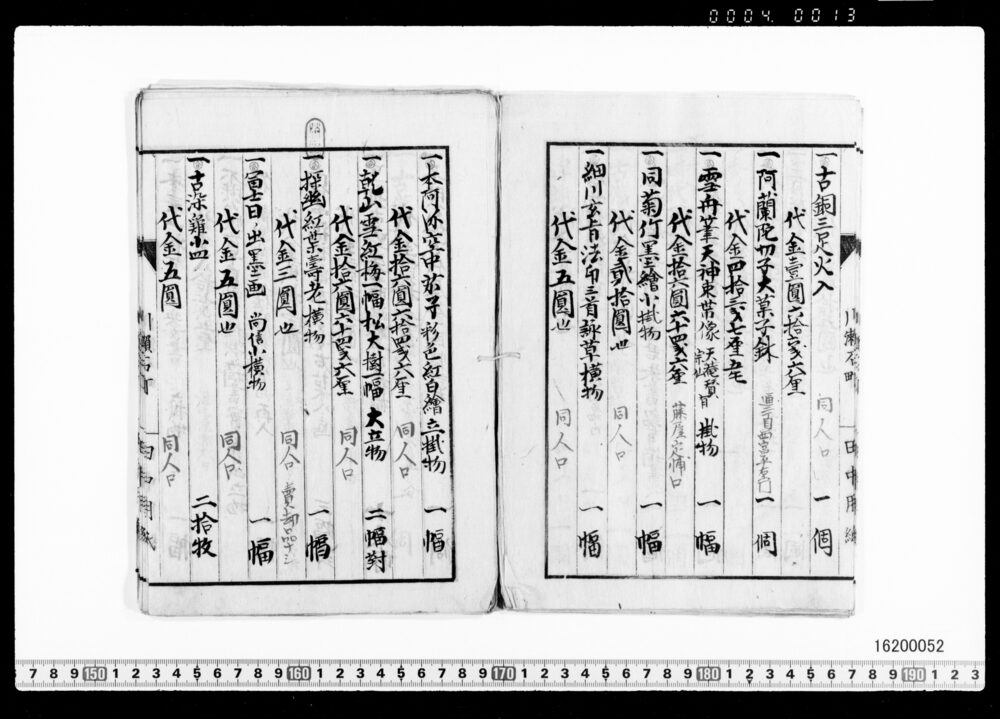 0004 0013
一 古銅三足火入 一個
代金壹圓六拾戔六厘 同人口
一 阿蘭陀切子大菓子鉢 一個
代金四拾弐戔七厘五毛
一 雪舟筆天神束帯像 天菴賛有 掛物 一幅
代金拾六圓六十四戔六厘
一 同菊竹墨繪小掛物 一幅
代金貳拾圓也 同人口
一 細川玄旨法印三首詠草横物 一幅
代金五圓也 同人口
一 本阿弥空中茄子彩色紅白繪立掛物 一幅
代金拾六圓六拾四戔六厘 同人口
一 乾山雪紅梅一幅松大樹一幅 大立物 二幅對
代金拾六圓六十四戔六厘 同人口
一 探幽紅葉壽老横物 一幅
代金三圓也 同人口
一 冨士日ノ出墨画 尚信小横物 一幅
代金五圓也 同人口
一 古染雞小皿 二拾枚
代金五圓 同人口
川瀬石町
田中
16200052
7 8 9 150 1 2 3 4 5 6 7 8 9 160 1 2 3 4 5 6 7 8 9 170 1 2 3 4 5 6 7 8 9 180 1 2 3 4 5 6 7 8 9 190 1 2 3